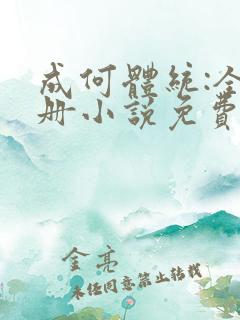 成何體統:全
册小说免費
金亮
未经同意禁止转载